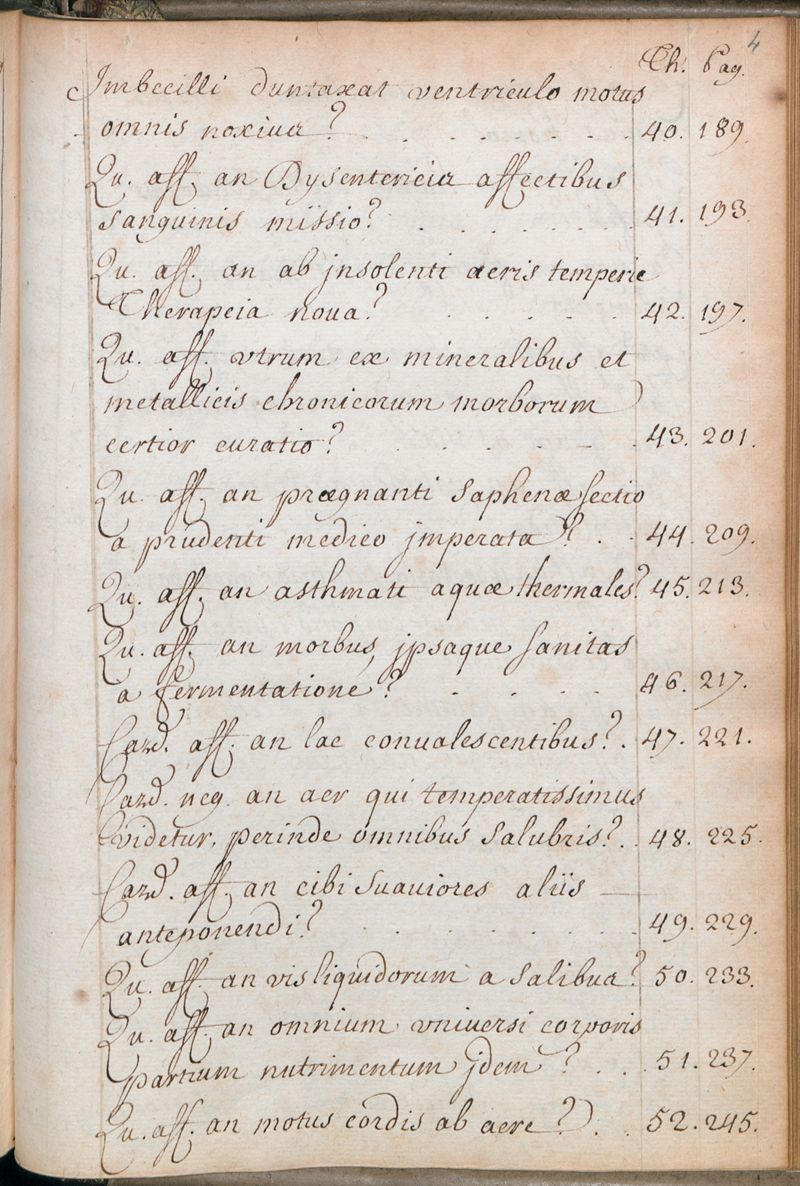 4
Th. Pag.
Imbecilli duntaxat ventriculo motus
omnis noxius? . . . . . . . 40. 189.
Qu. aff. an Dysentericis affectibus
sanguinis missio? . . . . . . 41. 193.
Qu. aff. an ab jnsolenti aeris temperie
Therapeia noua? . . . . . 42. 197.
Qu. aff. vtrum ex mineralibus et
metallicis chronicorum morborum
certior curatio? . . . . . 43. 201.
Qu. aff. an prægnanti saphenæ sectio
a prudenti medico jmperata? . . 44. 209.
Qu. aff. an asthmati aquæ thermales? 45. 213.
Qu. aff. an morbus, jpsaque sanitas
a fermentatione? . . . . 46. 217.
Card. aff. an lac conualescentibus? . 47. 221.
Card. neg. an aer qui temperatissimus
videtur, perinde omnibus salubris? . 48. 225.
Card. aff. an cibi suauiores aliis
anteponendi? . . . . . . 49. 229.
Qu. aff. an vis liquidorum a salibus? 50. 233.
Qu. aff. an omnium vniuersi corporis
partium nutrimentum jdem? . . . 51. 237.
Qu. aff. an motus cordis ab aere? . . 52. 245.